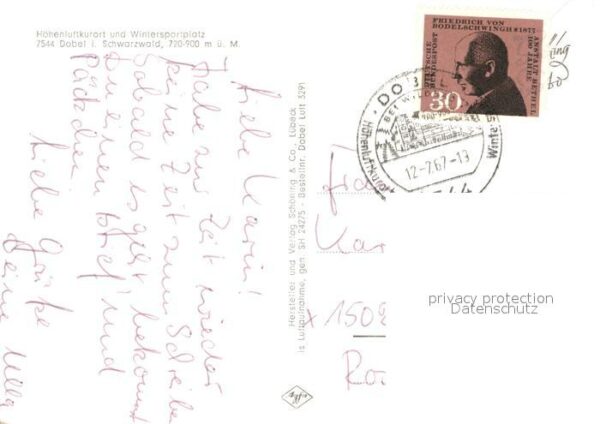 Höhenluftkurort und Wintersportplatz
7544 Dobel i. Schwarzwald, 720-900 m ü. M.
Liebe Karin!
Habe zur Zeit wieder
keine Zeit zum Schreiben
Sobald es geht bekommst
Du einen Brief und
Päckchen
Liebe Grüße
Deine Ulla
Hersteller und Verlag Schöning & Co., Lübeck
Luftaufnahme, gen. SH 24275 - Bestellnr. Dobel Luft 3291
FRIEDRICH VON
BODELSCHWINGH †1877
ANSTALT BETHEL
100 JAHRE
DEUTSCHE
BUNDESPOST
30
DO
Höhenluftkur
Winters
12-7.67-13
Kar
x 1509
Ro
privacy protection
Datenschutz